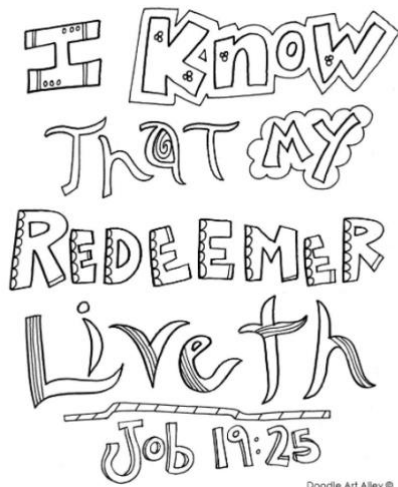 I KNOW
THAT MY
REDEEMER
Liveth
Job 19:25
Doodle Art Alley ©